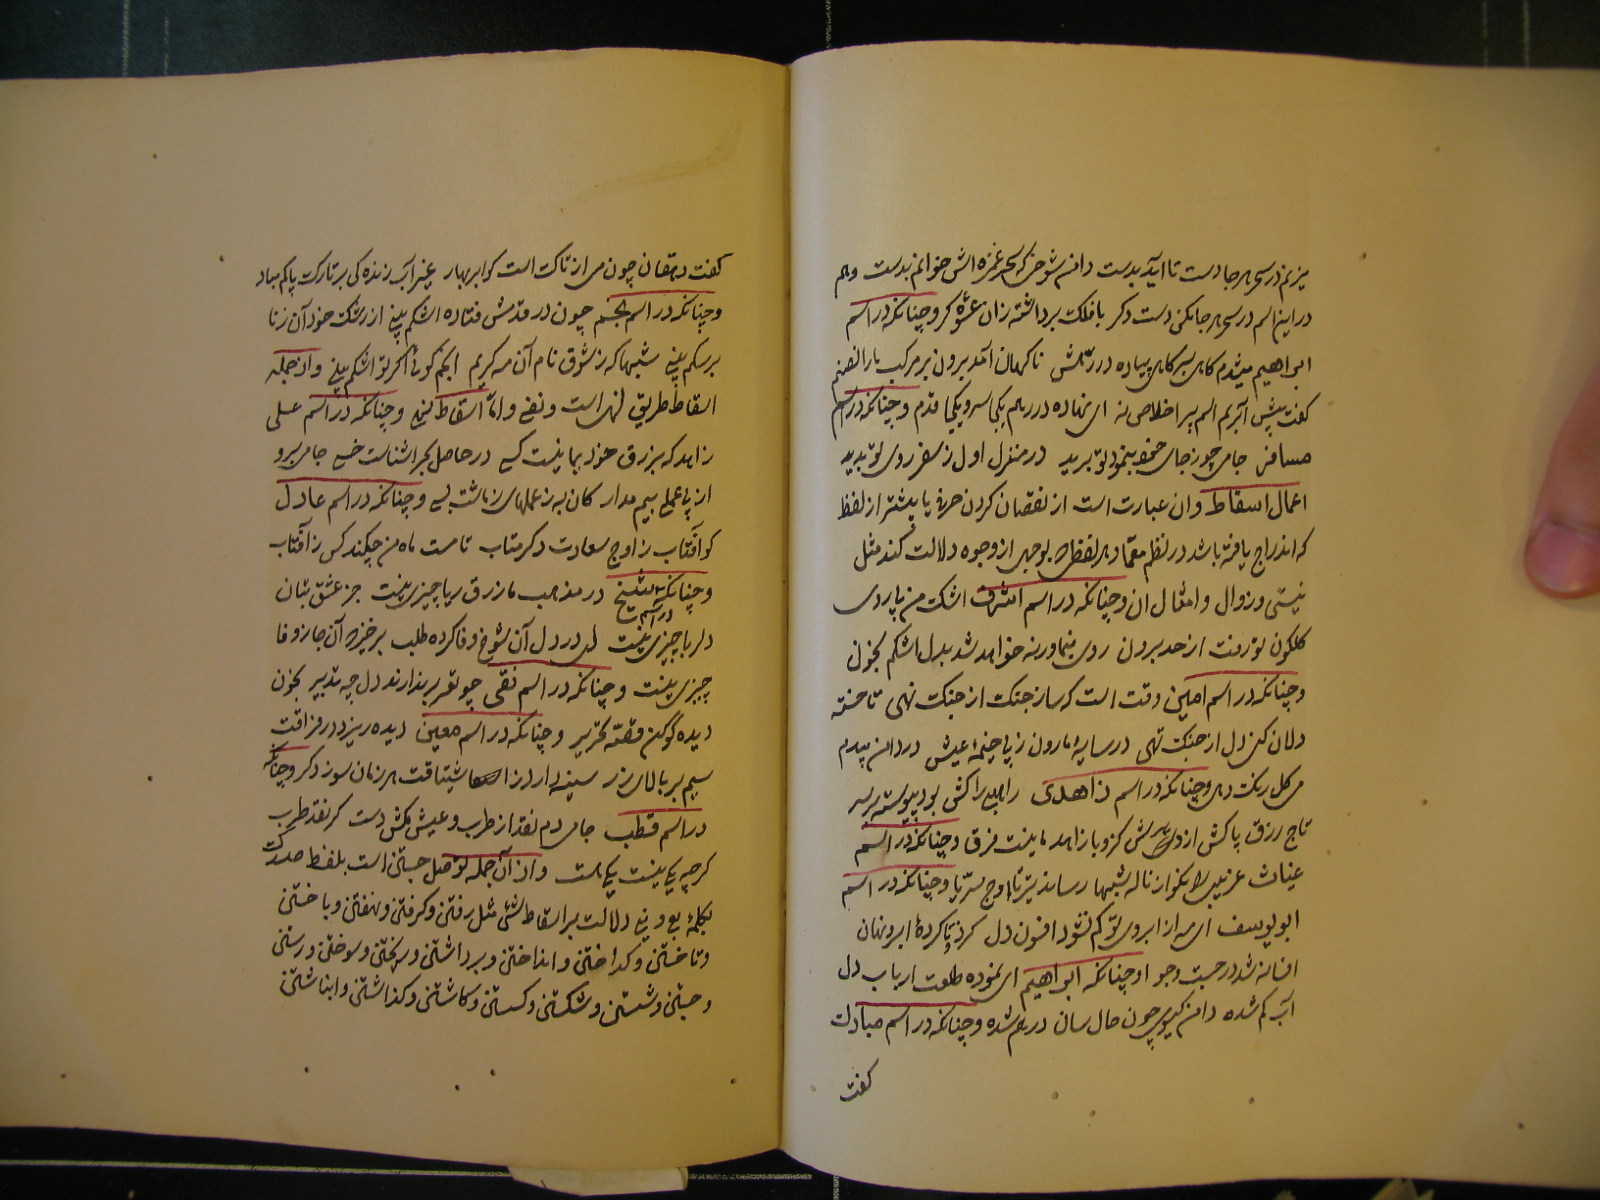 میزنم در سحر هر جا دست تا آید بدست دامن شوخی که سحر غمزه اش خوانم بدست وهم
در این اسم در سحر هر جا نکنی دست دکر با فلک برداشته زان عشوه کر وچنانکه در اسم
ابراهیم میشدم کاهی سر کاهی پیاده در رهش ناکهان آمد برون بر مرکب باز آن صنم
کفت پیش آبرهم اسم پر اخلاصی نه ای نهاده در رهم یکجا سر ویکجا قدم وچنانکه در اسم
مسافر جامی چو ز جای خود بتو برید در منزل اول ز سفر روی تو بدید
اعمال اسقاط وان عبارت است از نقصان کردن حرفی یا بیشتر از لفظ
که اندراج یافته باشد در نظم معما وهر لفظی که بوجهی از وجوه دلالت کند مثل
نیستی وزوال وامثال آن وچنانکه در اسم اشرف اشک من پا ز روی
کلکون تو رفت از حد برون روی بنما ورنه خواهد شد بدل اشکم بخون
وچنانکه در اسم امین وقت است که ساز جنکت از چنکت نهی تا خسته
دلان کنی دل از جنکت تهی در سایه هارون زپی خیمه عیش در دامن پیدم
می کل رنکت دهی وچنانکه در اسم زاهدی راهی را کش بود پیوسته بر سر
تاج زرق پاکش از دل سرکش کزو با زاهد ما نیست فرق وچنانکه در اسم
غیاث غریبی را نکو از ناله شبها رساند تیر تا اوج ثریا وچنانکه در اسم
ابو یوسف ای مه از ابروی تو کم نشود افسون دل کرد تا کرده ابرو نهان
افسانه شد در جست وجو او چنانکه ابراهیم ای نموده طلعت ارباب دل
آب کم شده دامن کیسوی چون حال سان درهم شده وچنانکه در اسم مبارک
کفت
کفت دهقان چون می از تاکت است کو ابر بهار غیر آب زندکی بر تارکت پاکم مباد
وچنانکه در اسم نجم چون در قدمش فتاده اشکم بینی از رشکت خود آن زنا
بر سکم بینی شبها که ز شوق نام آن مه کریم انجم کوئی اکر تو اشکم بینی واز جمله
اسقاط طریق نهی است ونفی واما اسقاط نهی وچنانکه در اسم علی
زاهد که بزرق خود بما نیست کسی در حاصل بحر اشناست خسی جامی برو
از بی عملی بیم مدار کان به ز عملهای زشت بسی وچنانکه در اسم عادل
کو آفتاب ز اوج سعادت دکر متاب تا هست ماه من چکند کس ز آفتاب
وچنانکه در اسم شیخ در مذهب ما زرق ریا چیزی نیست جز عشق بتان
دلربا چیزی نیست ای در دل آن شوخ وفا کرده طلب برخیز که آن جا ز وفا
چیزی نیست وچنانکه در اسم نقی چو تو بر سر ندارند دل چه تدبیر بخون
دیده کو کن قصه تحریر وچنانکه در اسم معین دیده ریزد در فراقت
سیم بر بالای زر سینه دارد ز اشتیاقت هر زمان سوز دکر وچنانکه
در اسم قطب جامی دم نقد از طرب وعیش مکش دست کر نقد طرب
کر چه یکی نیست یکی هست واز آن جمله توصل جستن است بلفظ صد کت
بکلمه بع ونع دلالت بر اسقاط شئی مثل رفتن وکرفتن ونهفتن وباختن
وتاختن وکداختن وانداختن وبرداشتن وریختن وسوختن ورستن
وجستن وشستن وشکستن وکسستن وکاشتن وکذاشتن وانباشتن